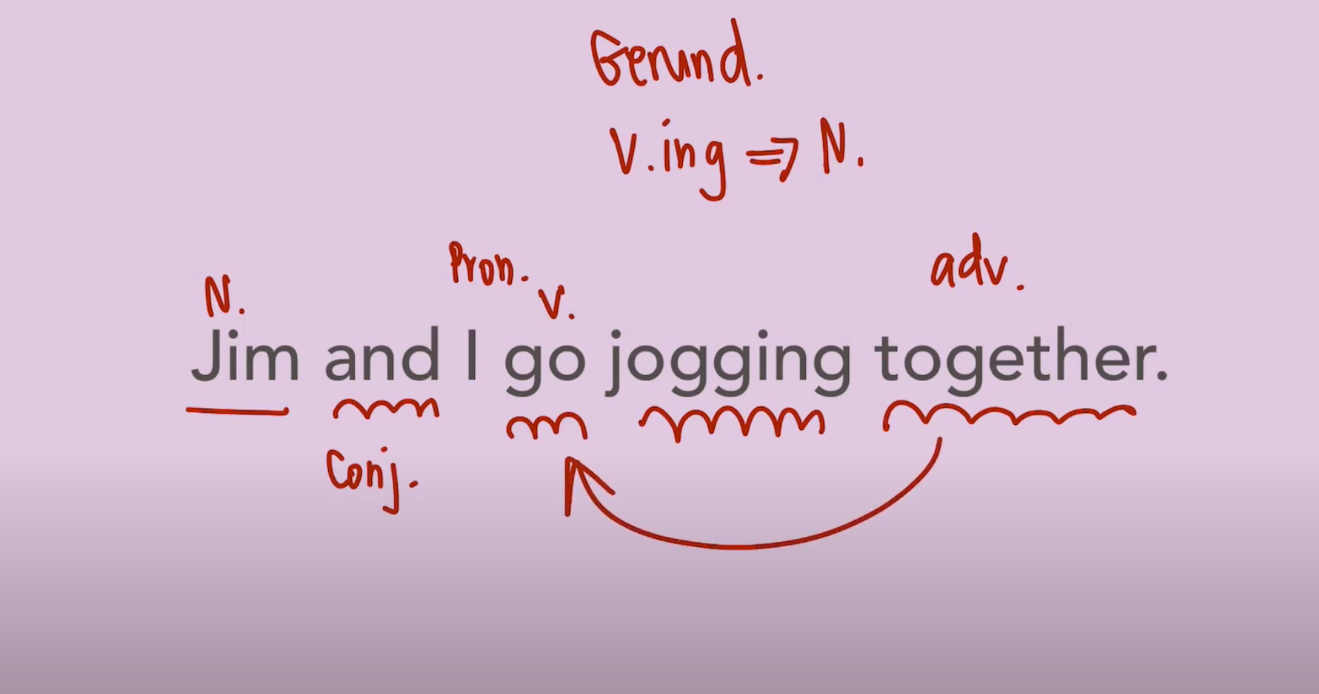 Gerund.
V.ing ⇒ N.
N. Pron. V. adv.
Jim and I go jogging together.
Conj.